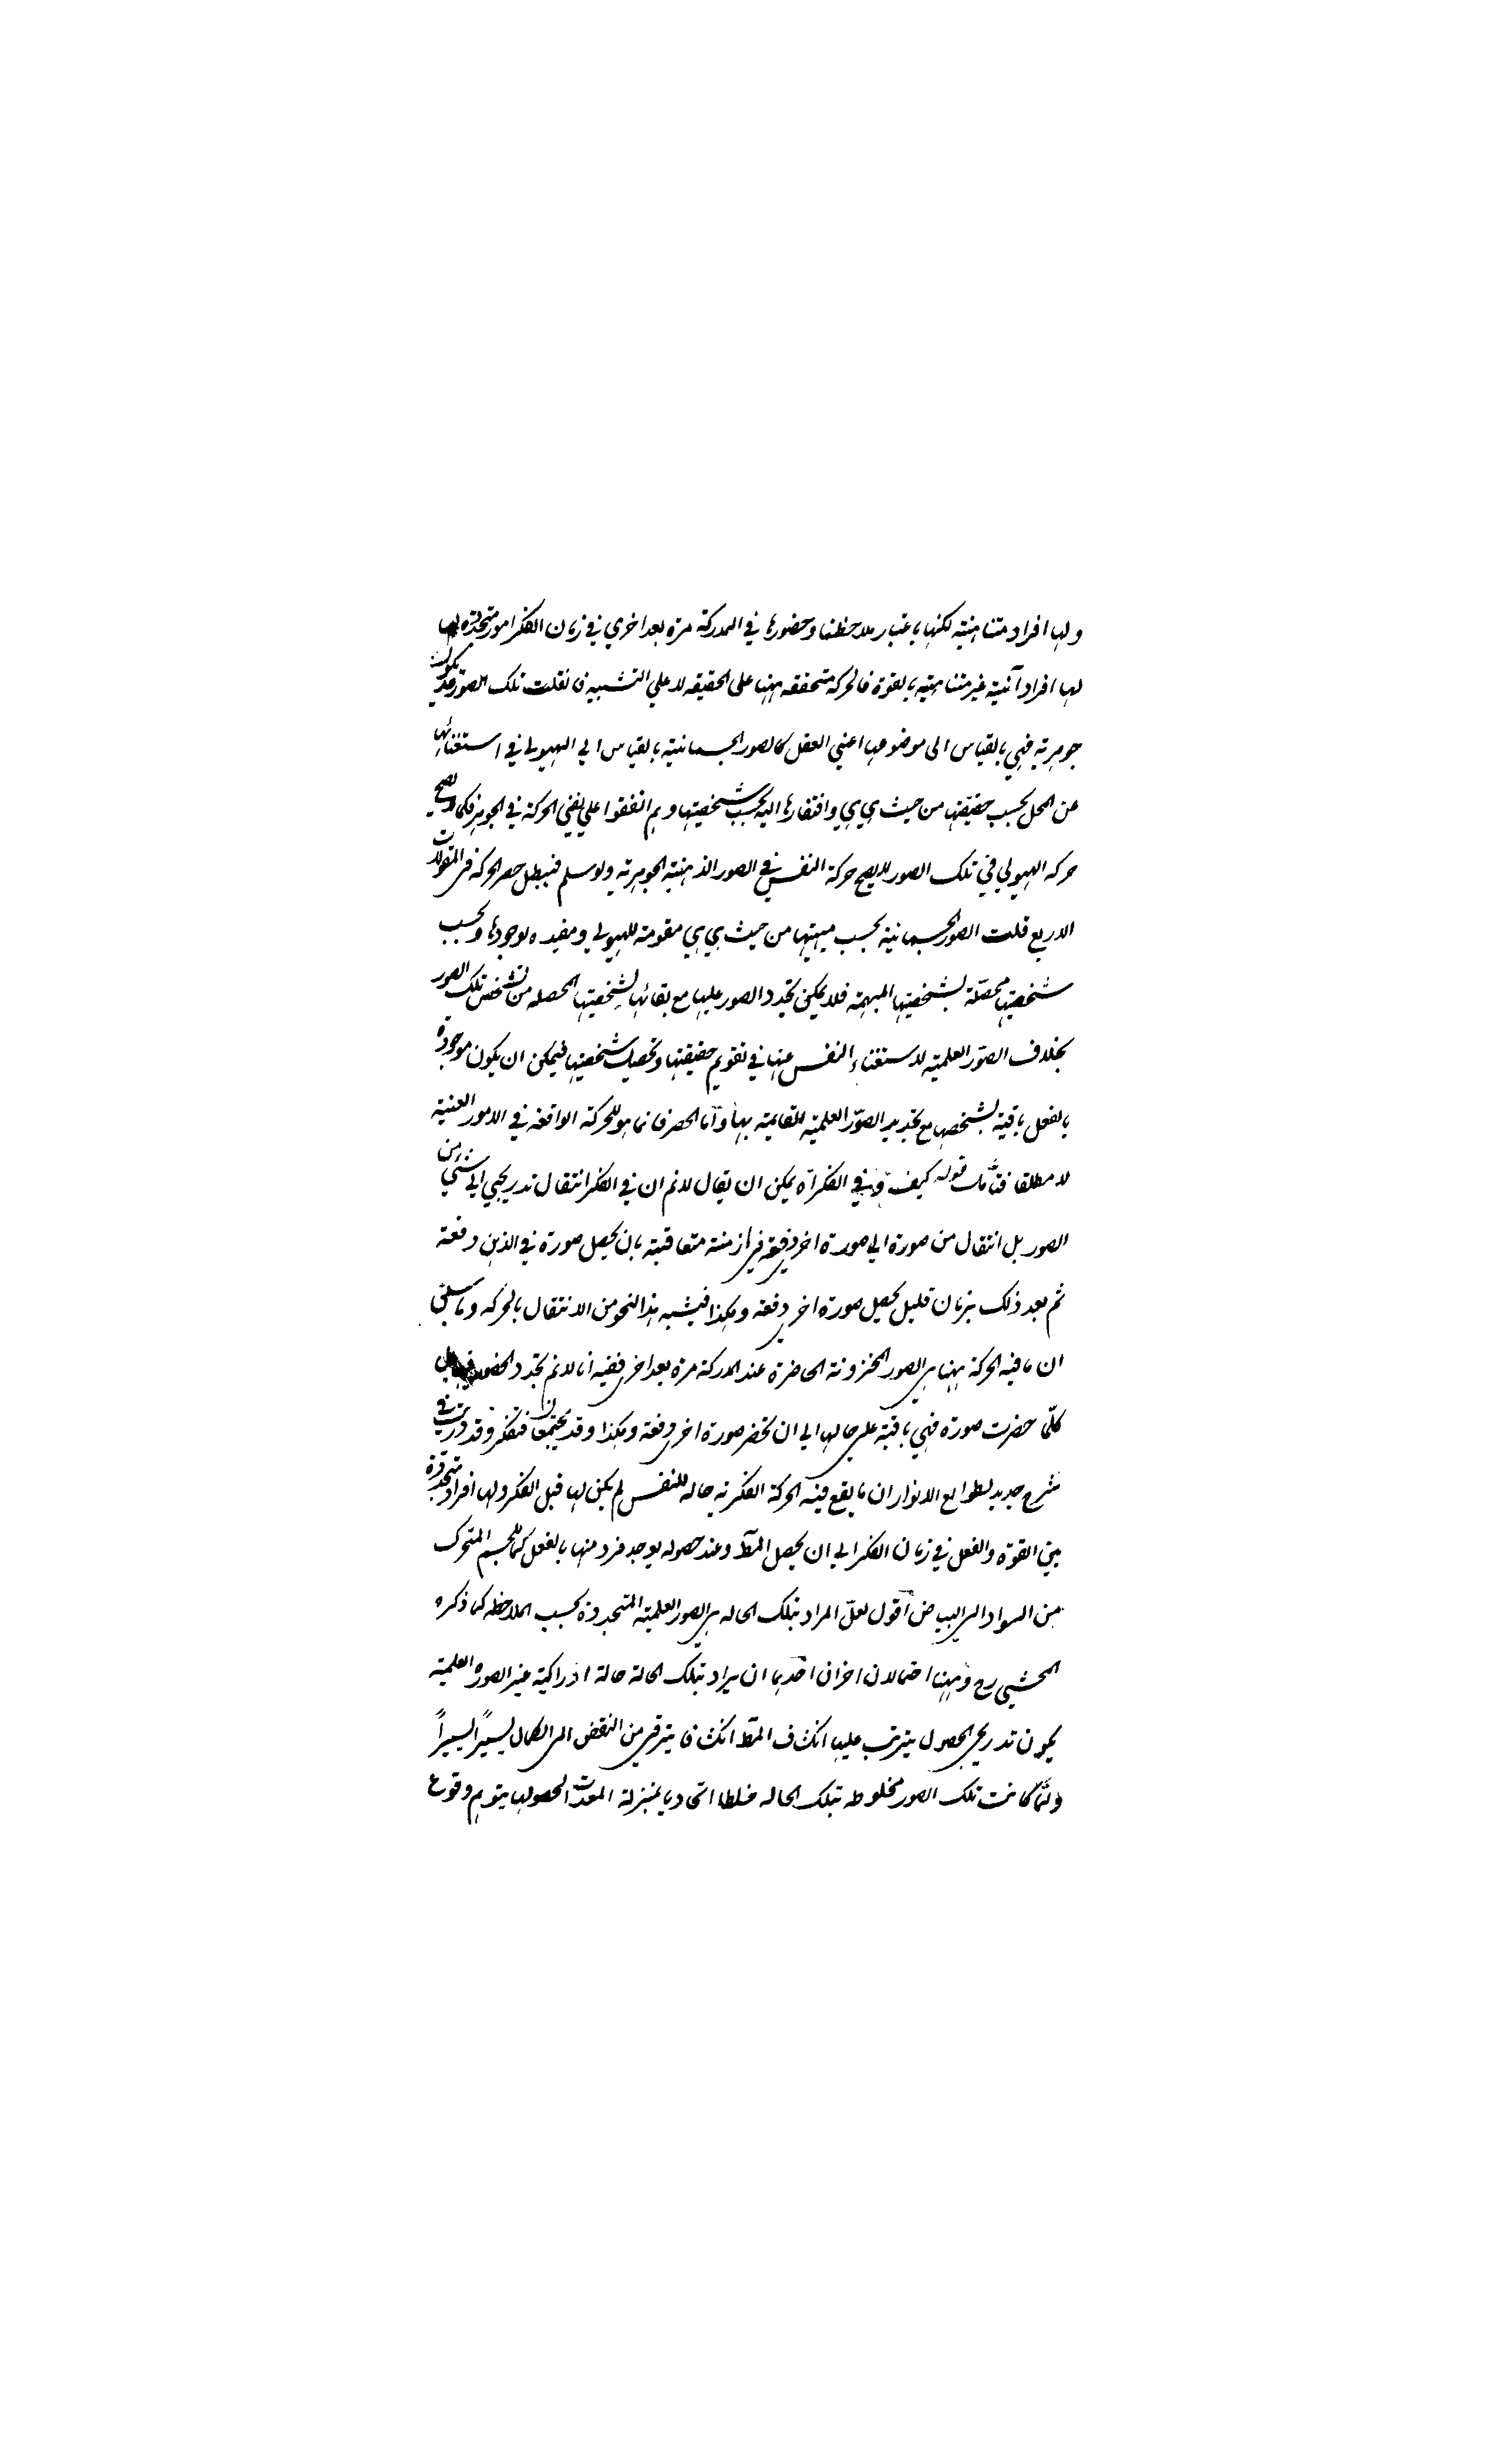 ولها افراد متناهية لكنها باعتبار ملاحظتنا وحضورها في المدركة مرة بعد اخري في زمان الفكر امور متجددة
لها افراد آنية غير متناهية بالقوة فالحركة متحققه ههنا على الحقيقه لا علي التشبيه فان قلت تلك الصور قد يكون
جوهرية فهي بالقياس الى موضوعها اعني العقل كالصور الجسمانية بالقياس الي الهيولي في استغنائها
عن المحل بحسب حقيقتها من حيث هي هي وافتقارها اليه بحسب شخصيتها وهم اتفقوا علي نفي الحركة في الجوهر فكما لا يصح
حركه الهيولي في تلك الصور لا يصح حركة النفس في الصور الذهنية الجوهرية ولو سلم فيبطل حصر الحركة في المقولات
الاربع قلت الصور الجسمانية بحسب مهيتها من حيث هي هي مقومة للهيولي ومفيده لوجودها وبحسب
شخصيتها محصّلة لشخصيتها المبهمة فلا يمكن تجدد الصور عليها مع بقائها بشخصيتها الحصله من تشخص تلك الصور
بخلاف الصوّر العلمية لاستغناء النفس عنها في تقويم حقيقتها وتحصيل شخصيتها فيمكن ان يكون موجودة
بالفعل باقية بشخصها مع تجديد الصوّر العلمية القايمة بها وامّا الحصر فانما هو للحركة الواقعة في الامور العينية
لا مطلقا فتأمّل قوله كيف وفي الفكر آه يمكن ان يقال لانم ان في الفكر انتقال تدريجي الي شئ من
الصور بل انتقال من صورة الي صورة اخري دفعة في ازمنة متعاقبة بان يحصل صورة في الذهن دفعة
ثم بعد ذلك بزمان قليل يحصل صورة اخري دفعة وهكذا فيشبه هذا النحو من الانتقال بالحركه وما سبق
ان ما فيه الحركة ههنا هي الصور المخزونة الحاضرة عند المدركة مرة بعد اخري ففيه انا لانم تجدد الحضور بل
كلّما حضرت صورة فهي باقية على حالها الي ان تحضر صورة اخري دفعة وهكذا وقد يجتمعان فتفكر وقد وقع في
شرح جديد لطوالع الانوار ان ما يقع فيه الحركة الفكرية حاله للنفس لم يكن لها قبل الفكر ولها افراد متجددة
بين القوة والفعل في زمان الفكر الي ان يحصل المط وعند حصوله يوجد فرد منها بالفعل كما للجسم المتحرك
من السواد الى البياض اقول لعلّ المراد بتلك الحاله هي الصور العلمية المتجددة بحسب الملاحظه كما ذكره
المحشي رح وههنا احتمالان اخران احدهما ان يراد بتلك الحالة حالة ادراكية غير الصوره العلمية
يكون تدريجي الحصول يترتب عليها انكشاف المط انكشافا يترقي من النقص الى الكمال يسيراً يسيراً
ولمّا كانت تلك الصور مخلوطه بتلك الحاله خلطا اتحاديا بمنزلة المعدات لحصولها يتوهم وقوع